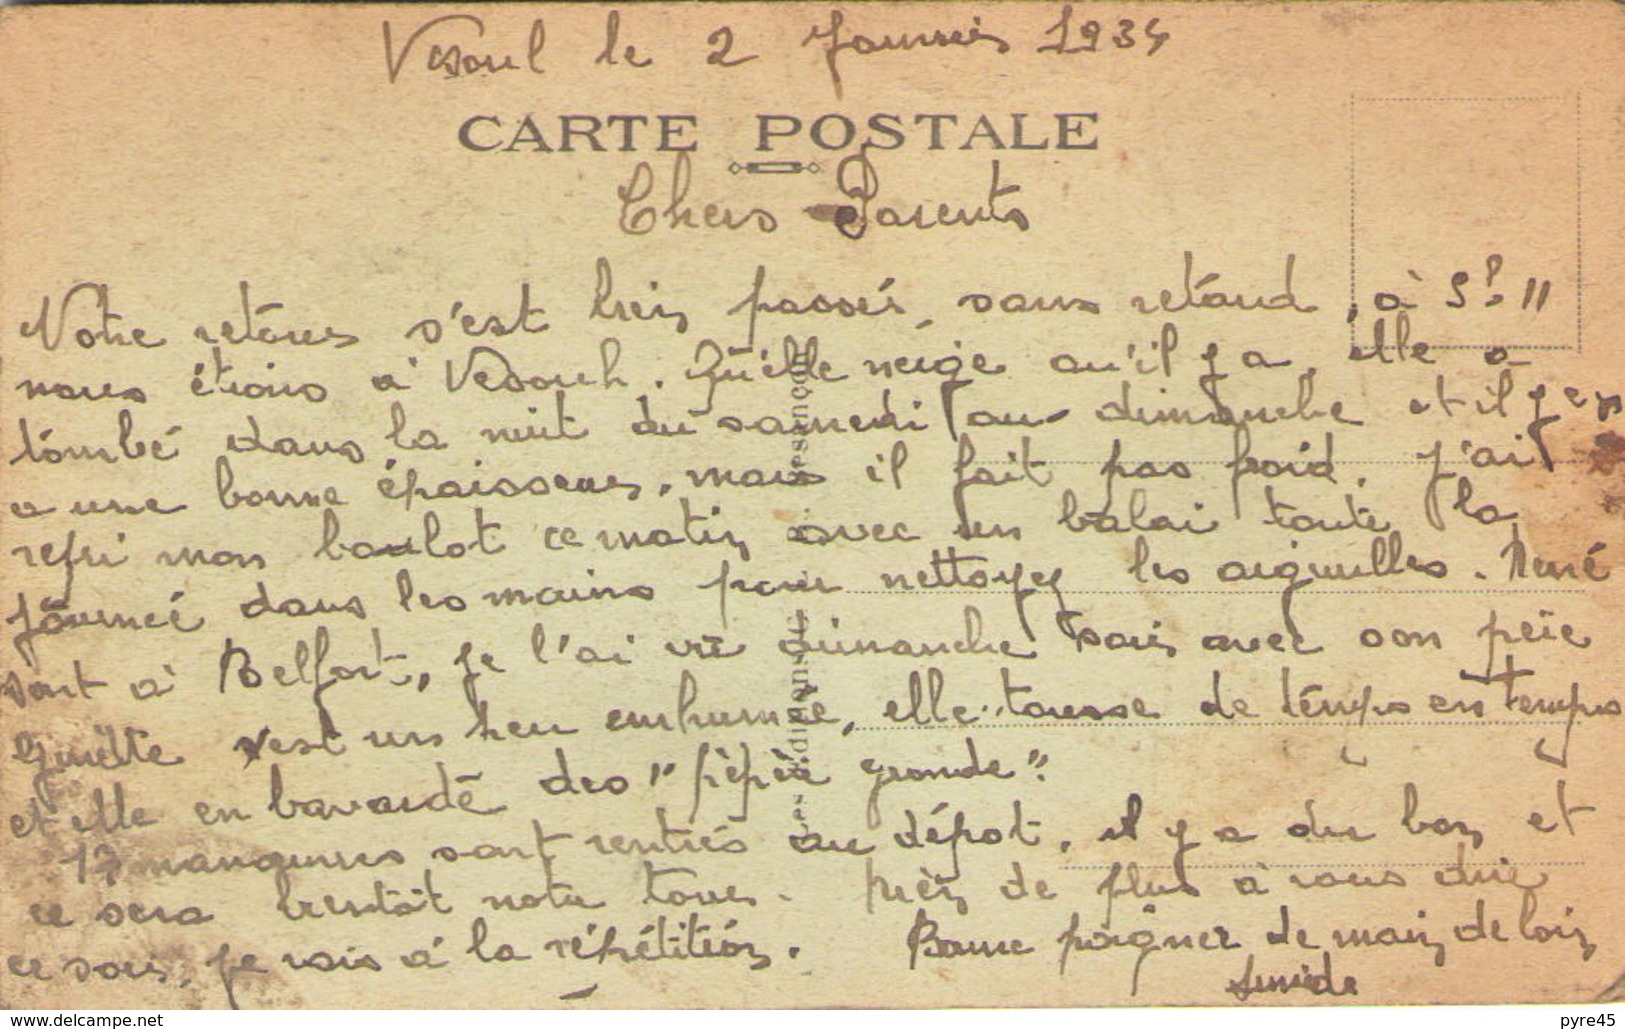 Vesoul le 2 Janvier 1934
CARTE POSTALE
Chers Parents
Notre retour s'est bien passés, sans retard, à 5h 11
nous étions à Vesoul. Quelle neige qu'il y a, elle a
tombé dans la nuit du samedi au dimanche et il y en
a une bonne épaisseur, mais il fait pas froid. J'ai
repri mon boulot ce matin avec un balai toute la
journée dans les mains pour nettoyer les aiguilles. René
sont à Belfort, je l'ai vu dimanche soir avec son père
Guitte est un peu enrhumée, elle tousse de temps en temps
et elle en bavarde des "pépée gronde".
17 manqueurs sont rentrés au dépot, il y a du bon et
ce sera bientôt notre tour. Rien de plus à vous dire
ce soir, je vais à la répétition. Bonne poigner de main de loin
Les Editions
pyre45